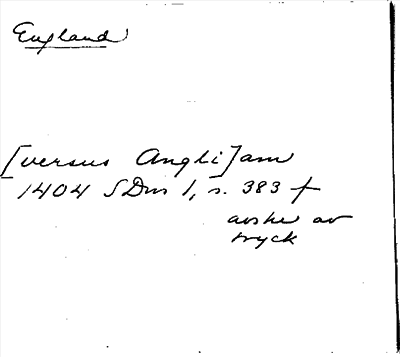 England
[versus Angli]am
1404 SDns 1, s. 383 f
avskr av
tryck